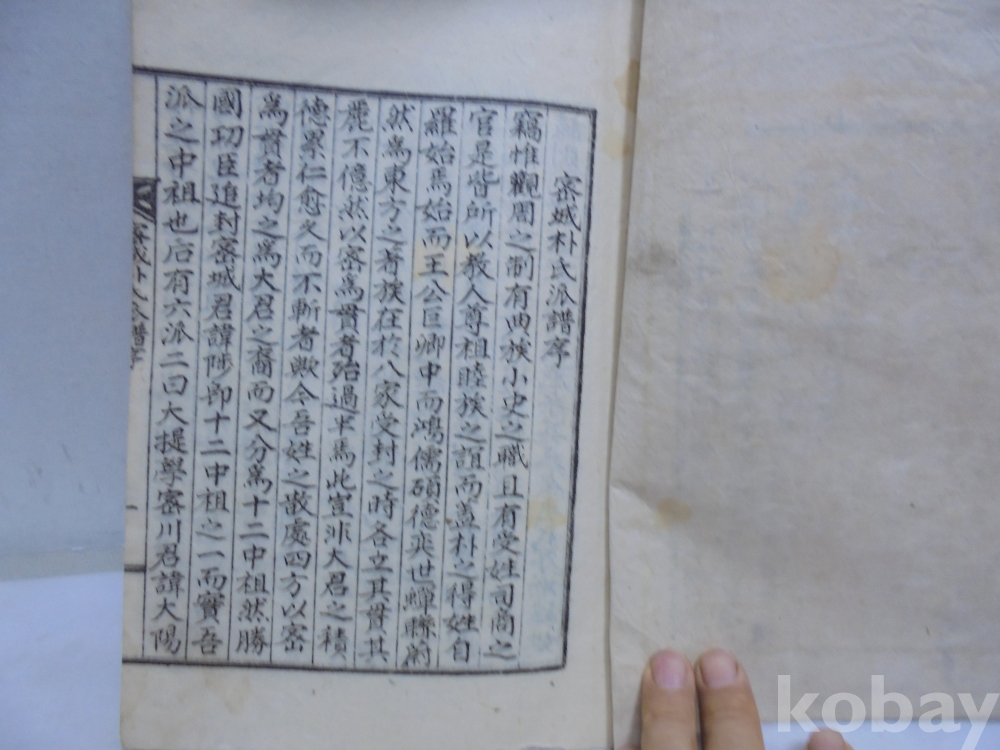 密城朴氏派譜序
竊惟觀周之制有四族小史之職且有受姓司商之
官是皆所以敎人尊祖睦族之誼而盖朴之得姓自
羅始焉始而王公巨卿中而鴻儒碩德奕世蟬聯蔚
然爲東方之著族在於八家受封之時各立其貫其
麗不億然以密爲貫者殆過半焉此豈非大君之積
德累仁愈久而不斬者歟今吾姓之散處四方以密
爲貫者均之爲大君之裔而又分爲十二中祖然勝
國功臣追封密城君諱陟郎十二中祖之一而實吾
派之中祖也后有六派二曰大提學密川君諱大陽
密城朴氏派譜序
一
kobay